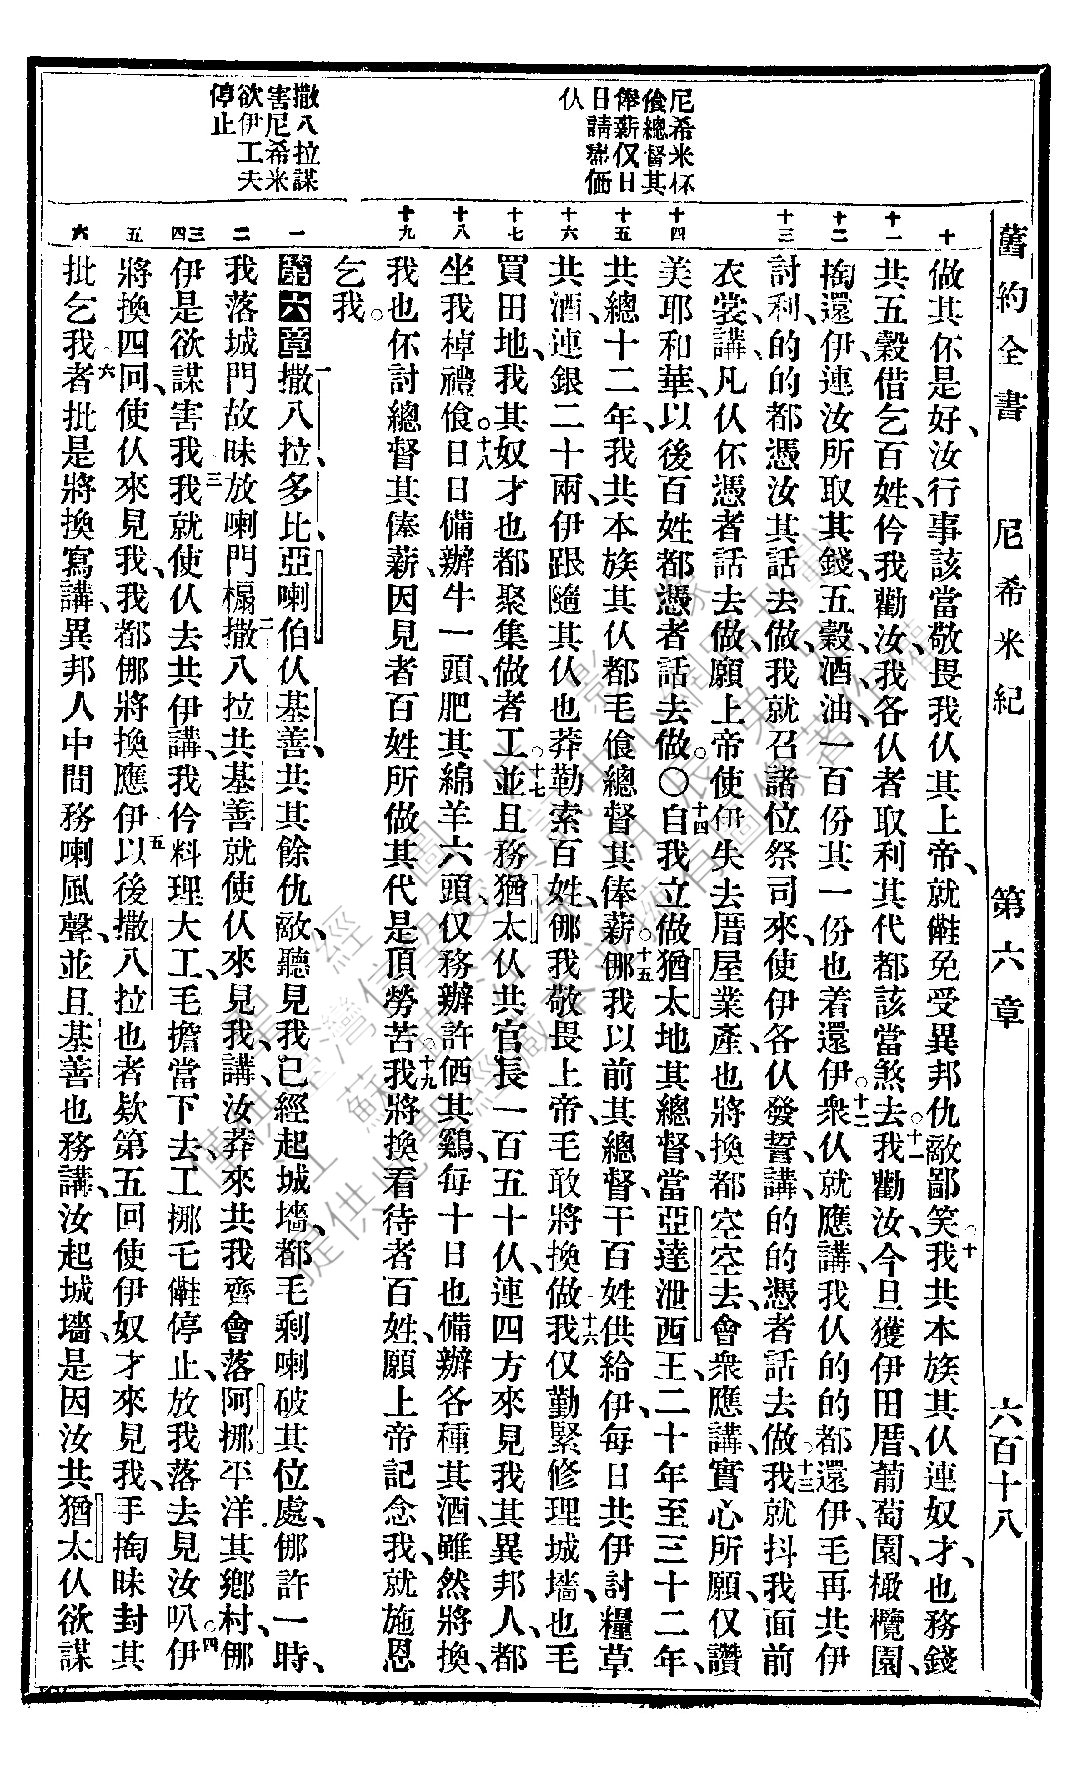 舊約全書 尼希米紀 第六章 六百十八
尼希米杯
飧總督其
俸薪仅日
日請許価
仫
撒八拉謀
害尼希米
欲伊工夫
停止
十 十一 十二 十三 十四 十五 十六 十七 十八 十九 一 二 三 四 五 六
做其伓是好、汝行事該當敬畏我仫其上帝、就𣍐免受異邦仇敵鄙笑。十我共本族其仫連奴才、也務錢
共五穀借乞百姓、仱我勸汝、我各仫者取利其代都該當煞去。十一我勸汝、今旦獲伊田厝、葡萄園、橄欖園、
掏還伊、連汝所取其錢、五穀、酒、油、一百份其一份也着還伊。十二衆仫就應講、我仫的的都還伊、毛再共伊
討利、的的都憑汝其話去做、我就召諸位祭司來、使伊各仫發誓、講、的的憑者話去做。十三我就抖我面前
衣裳、講、凡仫伓憑者話去做、願上帝使伊失去厝屋業產、也將換都空空去、會衆應講、實心所願、仅讚
美耶和華、以後百姓都憑者話去做。〇十四自我立做猶太地其總督、當亞達泄西王、二十年至三十二年、
共總十二年、我共本族其仫都毛飧總督其俸薪。十五挪我以前其總督、干百姓供給伊、每日共伊討糧草
共酒、連銀二十兩、伊跟隨其仫也莽勒索百姓、挪我敬畏上帝、毛敢將換做。十六我仅勤緊修理城墻、也毛
買田地、我其奴才也都聚集做者工。十七並且務猶太仫共官長一百五十仫、連四方來見我其異邦人、都
坐我棹禮飧。十八日日備辦牛一頭、肥其綿羊六頭、仅務辦許価其鷄、每十日也備辦各種其酒、雖然將換、
我也伓討總督其俸薪、因見者百姓所做其代是頂勞苦。十九我將換看待者百姓、願上帝記念我、就施恩
乞我。
第六章 一撒八拉、多比亞、喇伯仫基善、共其餘仇敵、聽見我已經起城墻、都毛剩喇破其位處、挪許一時、
我落城門故昧放喇門榻、二撒八拉共基善就使仫來見我、講、汝莽來共我齊會落阿挪平洋其鄉村、挪
伊是欲謀害我。三我就使仫去共伊講、我仱料理大工、毛擔當下去、工挪乇𣍐停止、放我落去見汝叭。四伊
將換四回、使仫來見我、我都挪將換應伊。五以後撒八拉也者欵第五回使伊奴才來見我、手掏昧封其
批乞我。六者批是將換寫講、異邦人中間務喇風聲、並且基善也務講、汝起城墻、是因汝共猶太仫欲謀